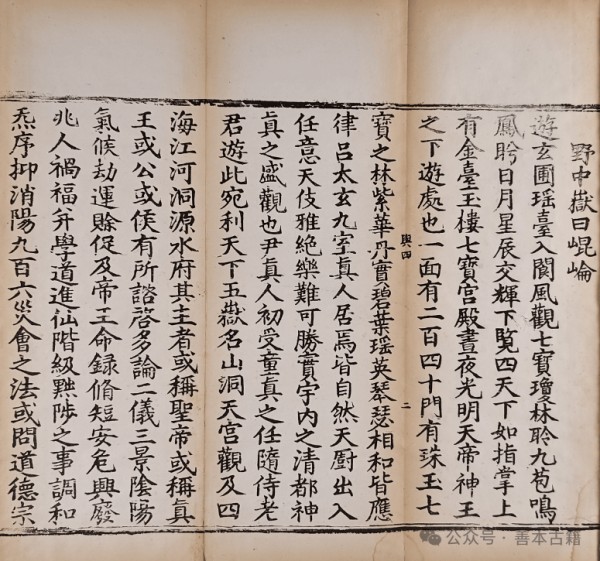 野中嶽曰崐崘
遊玄圃瑶臺入閬風觀七寶瓊林聆九苞鳴
鳳眄日月星辰交輝下覽四天下如指掌上
有金臺玉樓七寶宫殿晝夜光明天帝神王
之下遊處也一面有二百四十門有珠玉七
輿四
二
寶之林紫華丹實碧葉瑶英琴瑟相和皆應
律吕太玄九室真人居焉皆自然天厨出入
任意天伎雅絶樂難可勝賣宇内之清都神
真之盛觀也尹真人初受童真之任隨侍老
君遊此宛利天下五嶽名山洞天宫觀及四
海江河洞源水府其主者或稱聖帝或稱真
王或公或侯有所諮啓多論二儀三景陰陽
氣候劫運賒促及帝王命録脩短安危興廢
兆人禍福并學道進仙階級黜陟之事調和
炁序抑消陽九百六災會之法或問道德宗
公众号·善本古籍